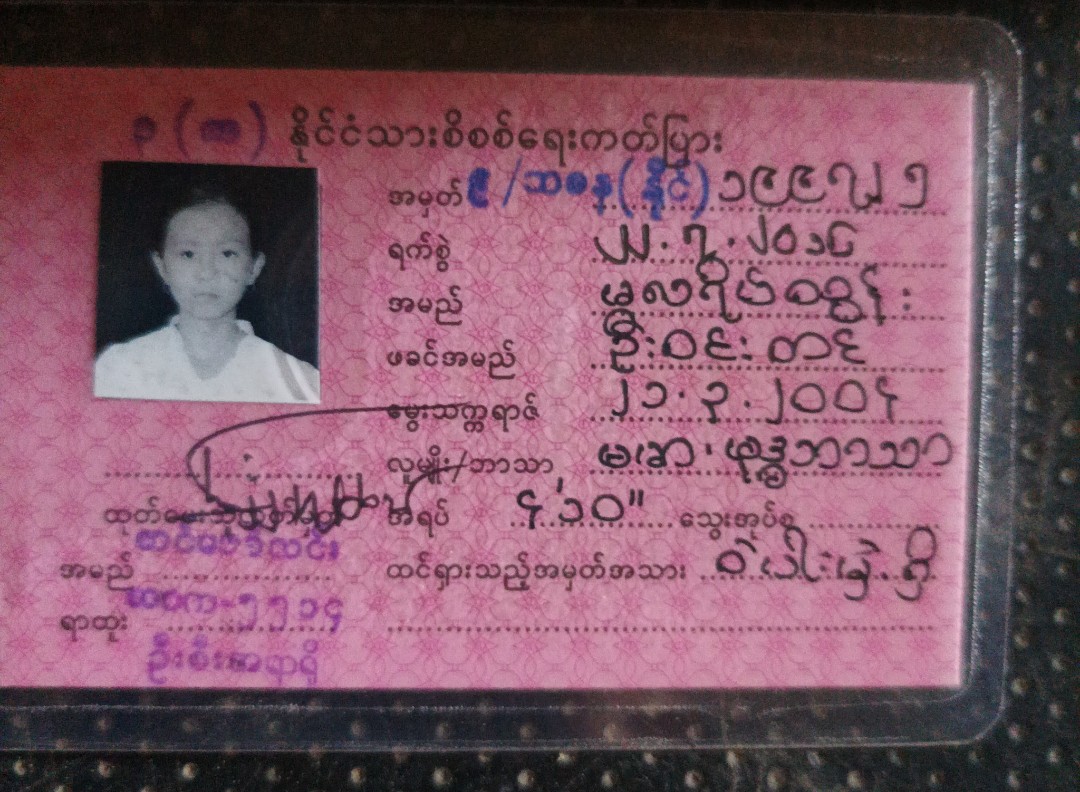 ၃ (က) နိုင်ငံသားစိစစ်ရေးကတ်ပြား
အမှတ် ၉/သစန(နိုင်) ၁၉၉၇၂၅
ရက်စွဲ ၂၂.၇.၂၀၁၆
အမည်
ဖခင်အမည် ဦးဝင်းတင်
မွေးသက္ကရာဇ် ၂၁.၃.၂၀၀၄
လူမျိုး/ဘာသာ ဗမာ၊ ဗုဒ္ဓဘာသာ
အရပ် ၄'၁၀" သွေးအုပ်စု
ထင်ရှားသည့်အမှတ်အသား ဝဲပါးမှဲ့.ရှိ
အမည်
ရာထူး လဝက-၅၅၁၄
ဦးစီးအရာရှိ